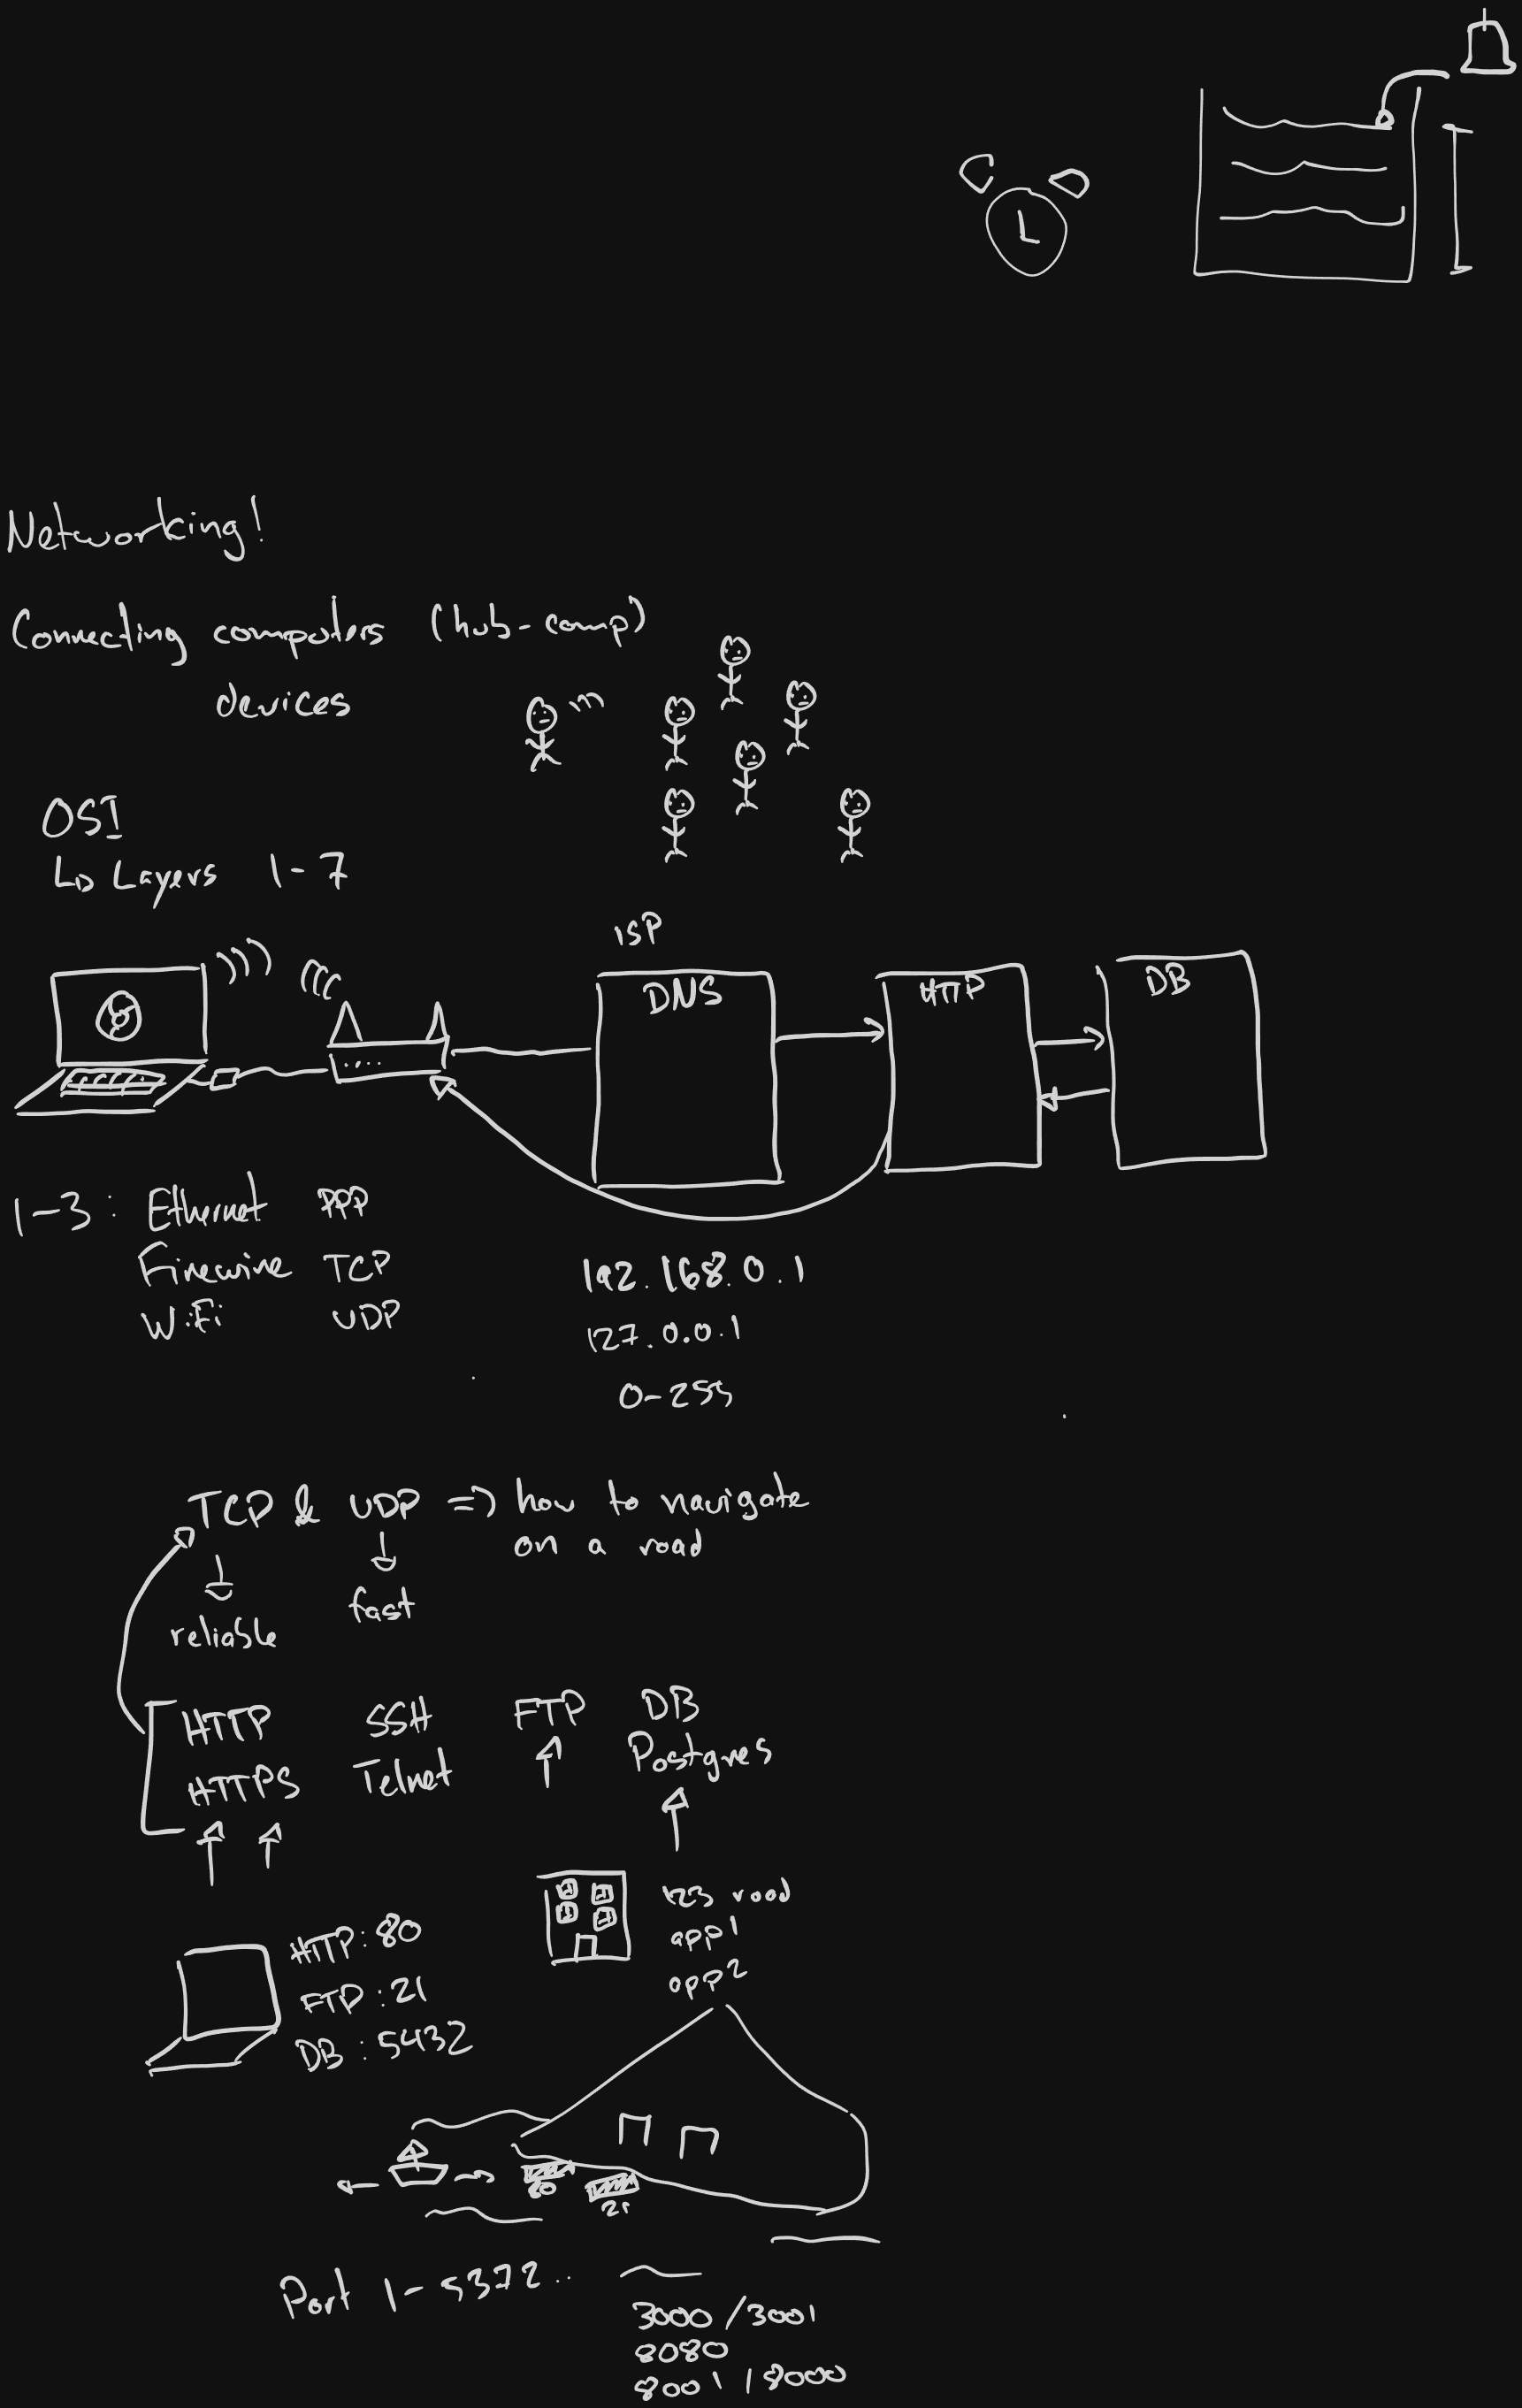 Networking!
Connecting computers (hub-comp)
devices
OSI
↳ Layers 1-7
ISP
DNS
HTTP
DB
1-3: Ethernet PPP
Firewire TCP
WiFi UDP
192.168.0.1
127.0.0.1
0-255
TCP & UDP => how to navigate
on a road
reliable
fast
HTTP SSH FTP DB
HTTPS Telnet Postgres
123 road
app 1
app 2
HTTP: 80
FTP: 21
DB: 5432
80
21
Port 1-
3000/3001
8080
8001/8000